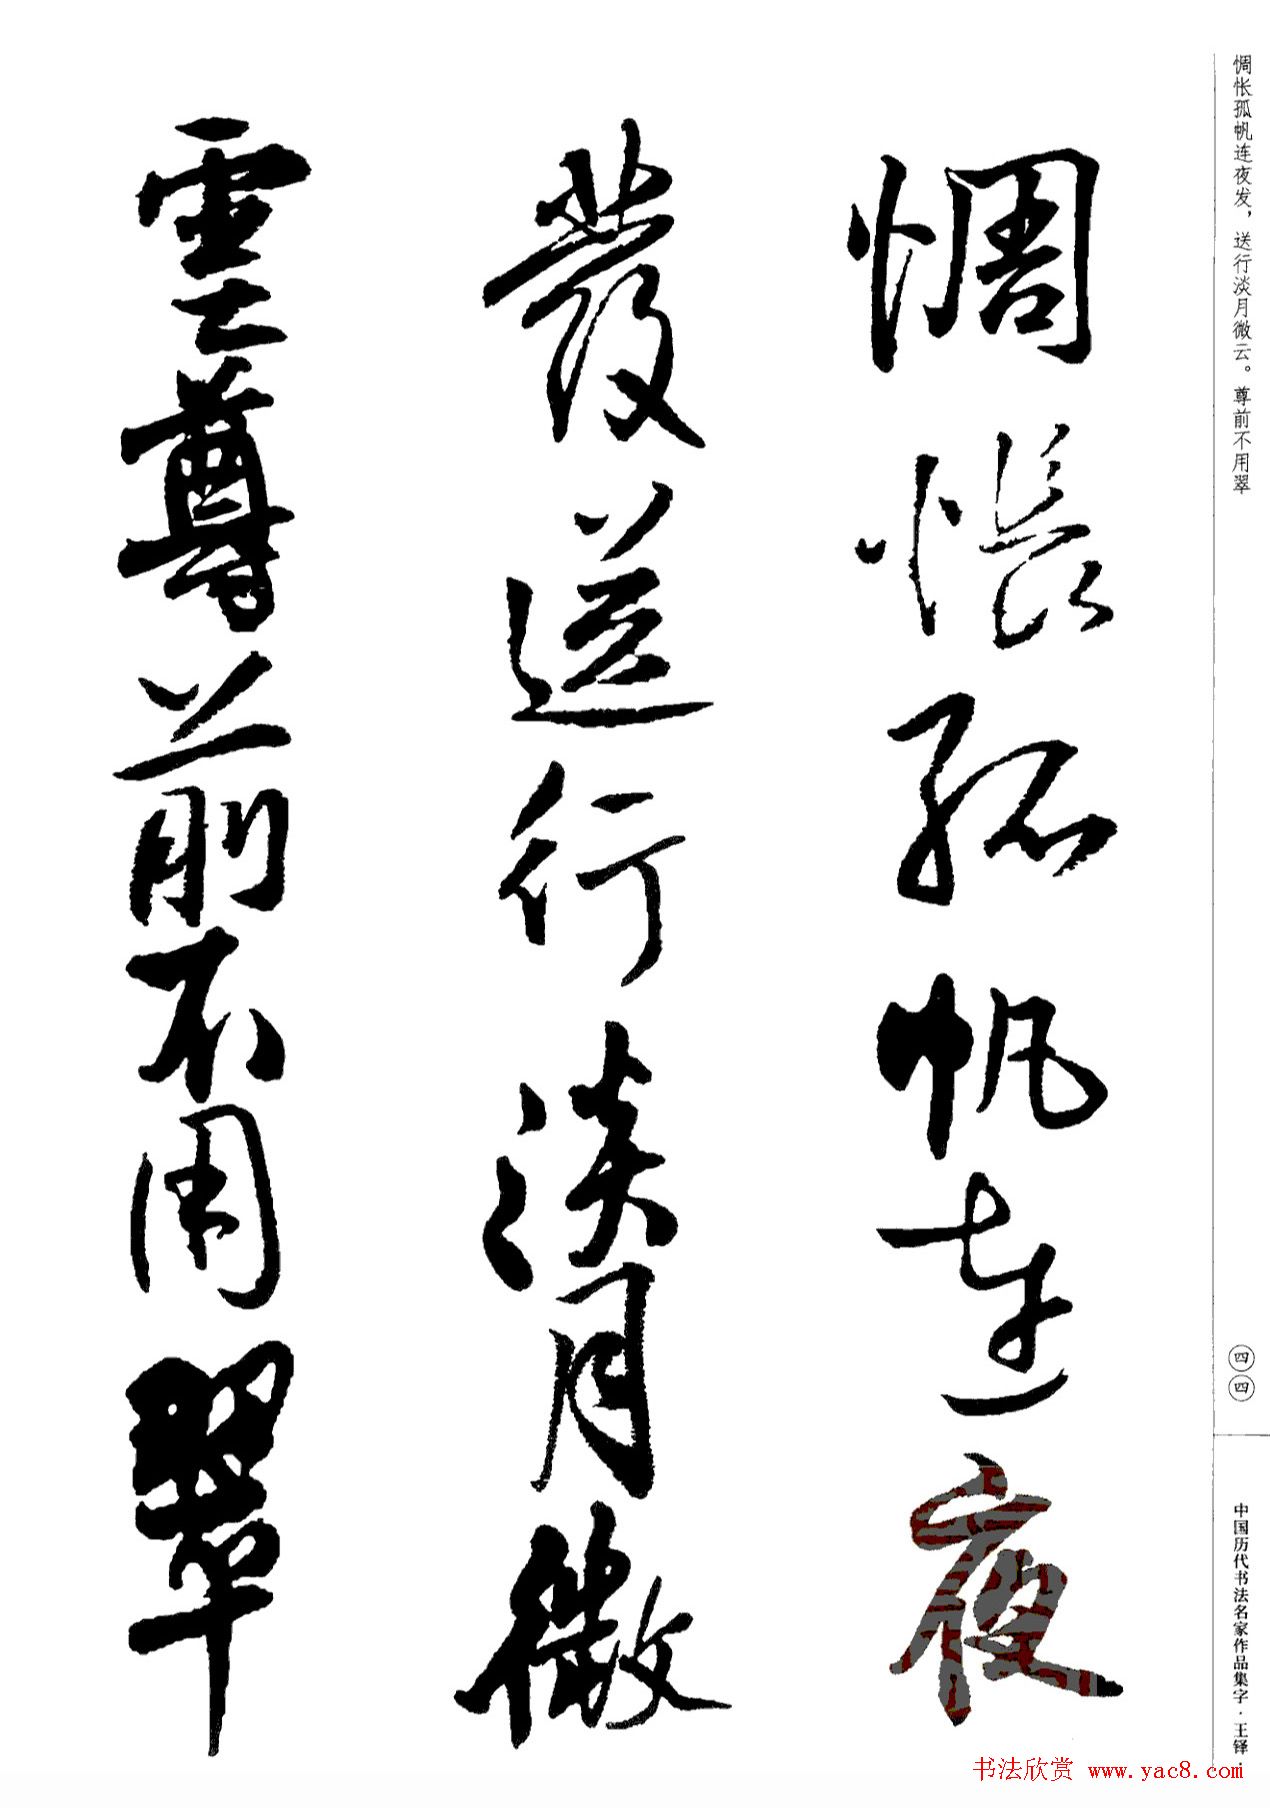 惆怅孤帆连夜发，送行淡月微云。尊前不用翠
惆悵孤帆連夜
發送行淡月微
雲尊前不用翠
四四
中国历代书法名家作品集字·王铎·
书法欣赏 www.yac8.com